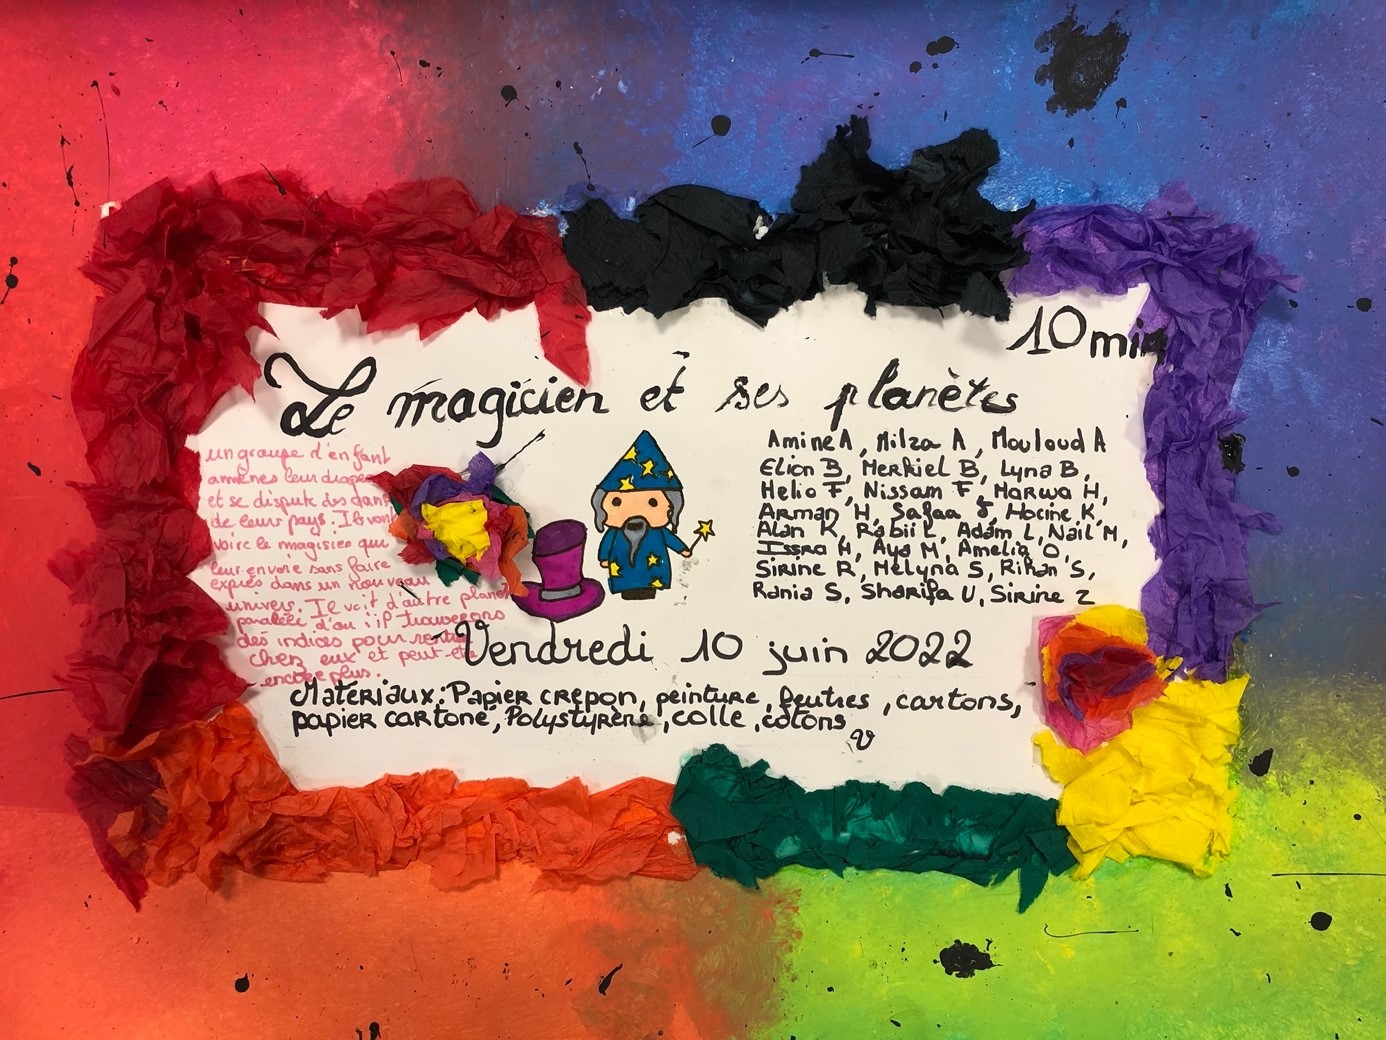 10 min
Le magicien et ses planètes
un groupe d'enfant
amènes leur drapea
et se dispute des dans
de leurs pays. Ils vont
voire le magisien qui
leur envoie sans faire
exprès dans un nouveau
univers. Il voit d'autre planèt
parallèl d'où ils trouverons
des indices pour rentre
chez eux et peut-êtr
encore plus.
Amine A, Milza A, Mouloud A
Elion B, Merkiel B, Lyna B,
Helio F, Nissam F, Marwa H,
Arman H, Safaa J, Hocine K,
Alan K, Rabii L, Adam L, Naïl M,
Issra M, Aya M, Amelia O,
Sirine R, Melyna S, Rihan S,
Rania S, Sharifa U, Sirine Z
Vendredi 10 juin 2022
Matériaux: Papier crépon, peinture, feutres, cartons,
papier cartone, Polystyrène, colle, cotons